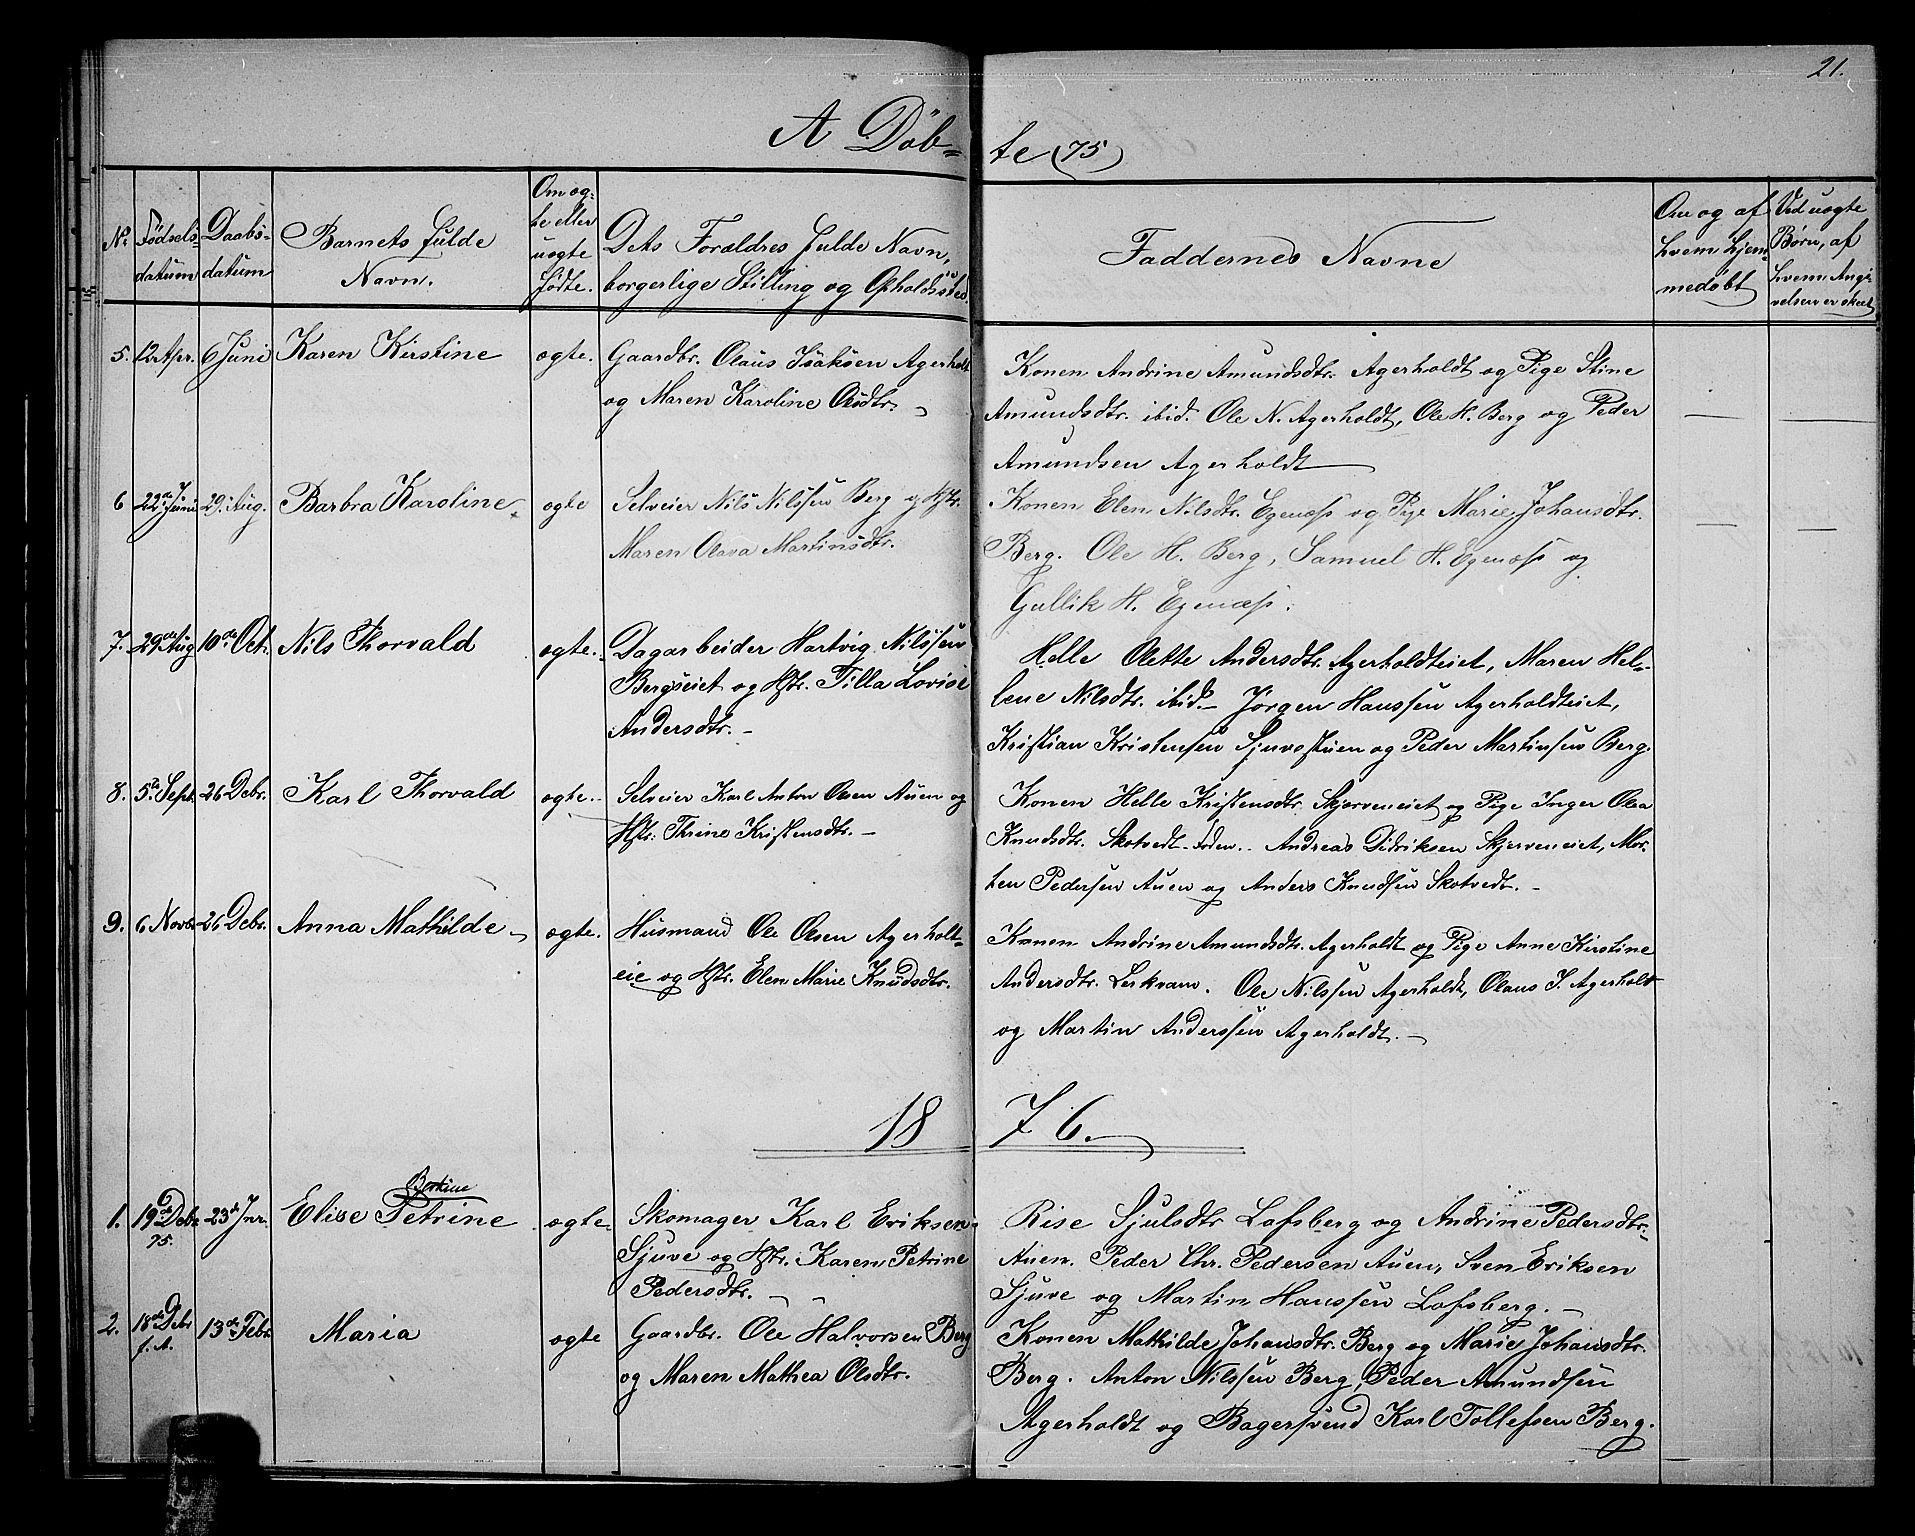 21.
A Döb=
te (75)
No.
Födsels-
datum
Daabs-
datum
Barnets fulde
Navn.
Om æg-
te eller
uægte
födte.
Dets Forældres fulde Navn,
borgerlige Stilling og Opholdssted.
Faddernes Navne
Om og af
hvem hjem-
medøbt
Ved uægte
Børn, af
hvem Angi-
velsen er skeet
5. 12 Apr. 6 Juni Karen Kirstine ægte. Gaardbr. Olaus Isaksen Agerholt
og Maren Karoline Olsdtr.
Konen Andrine Amundsdtr. Agerholdt og Pige Stine
Amundsdtr. ibid. Ole N. Agerholdt, Ole H. Berg og Peder
Amundsen Agerholdt
6 22de Juni 29. Aug. Barbra Karoline ægte Selveier Nils Nilssen Berg og Hstr.
Maren Olava Martinsdtr.
Konen Elen Nilsdtr. Egenæss og Pige Marie Johansdtr.
Berg. Ole H. Berg, Samuel H. Egenæss og
Gullik H. Egenæss.
7. 29de Aug 10de Oct. Nils Thorvald ægte. Dagarbeider Hartvig Nilssen
Bergseiet og Hstr. Tilla Lovise
Andersdtr. -
Helle Olette Andersdtr. Agerholdteiet, Maren Hel-
lene Nilsdtr. ibid. Jörgen Hanssen Agerholdteiet,
Kristian Kristensen Sjuvestuen og Peder Martinsen Berg.
8. 5te Sept. 26 Debr. Karl Thorvald ægte. Selveier Karl Anton Olsen Auen og
Hstr. Thrine Kristensdtr. -
Konen Helle Kristensdtr. Skjerveneiet og Pige Inger Olea
Knudsdtr. Skotvedt Andreas Didriksen Skjerveneiet, Mor-
ten Pedersen Auen og Anders Knudsen Skotvedt. -
9. 6 Novbr 26 Debr. Anna Mathilde ægte. Husmand Ole Olsen Agerholt-
eie og Hstr. Elen Marie Knudsdtr.
Konen Andrine Amundsdtr. Agerholdt og Pige Anne Kirstine
Andersdtr. Lerkvam. Ole Nilssen Agerholdt, Olaus I. Agerholdt
og Martin Anderssen Agerholdt. -
18 76.
Bertine
1. 19de Debr 23de Jnr. Elise Petrine ægte Skomager Karl Eriksen
75.
Sjuve og Hstr. Karen Petrine
Pedersdtr. -
Rise Sjulsdtr Lofsberg og Andrine Pedersdtr.
Auen. Peder Chr. Pedersen Auen, Sven Eriksen
Sjuve og Martin Hanssen Lofsberg. -
2. 18de Debr 13de Febr. Maria ægte Gaardbr. Ole Halvorsen Berg
f. A.
og Maren Mathea Olsdtr.
Konen Mathilde Johansdtr. Berg og Marie Johansdtr.
Berg. Anton Nilssen Berg, Peder Amundsen
Agerholdt og Bagersvend Karl Tollefsen Berg.